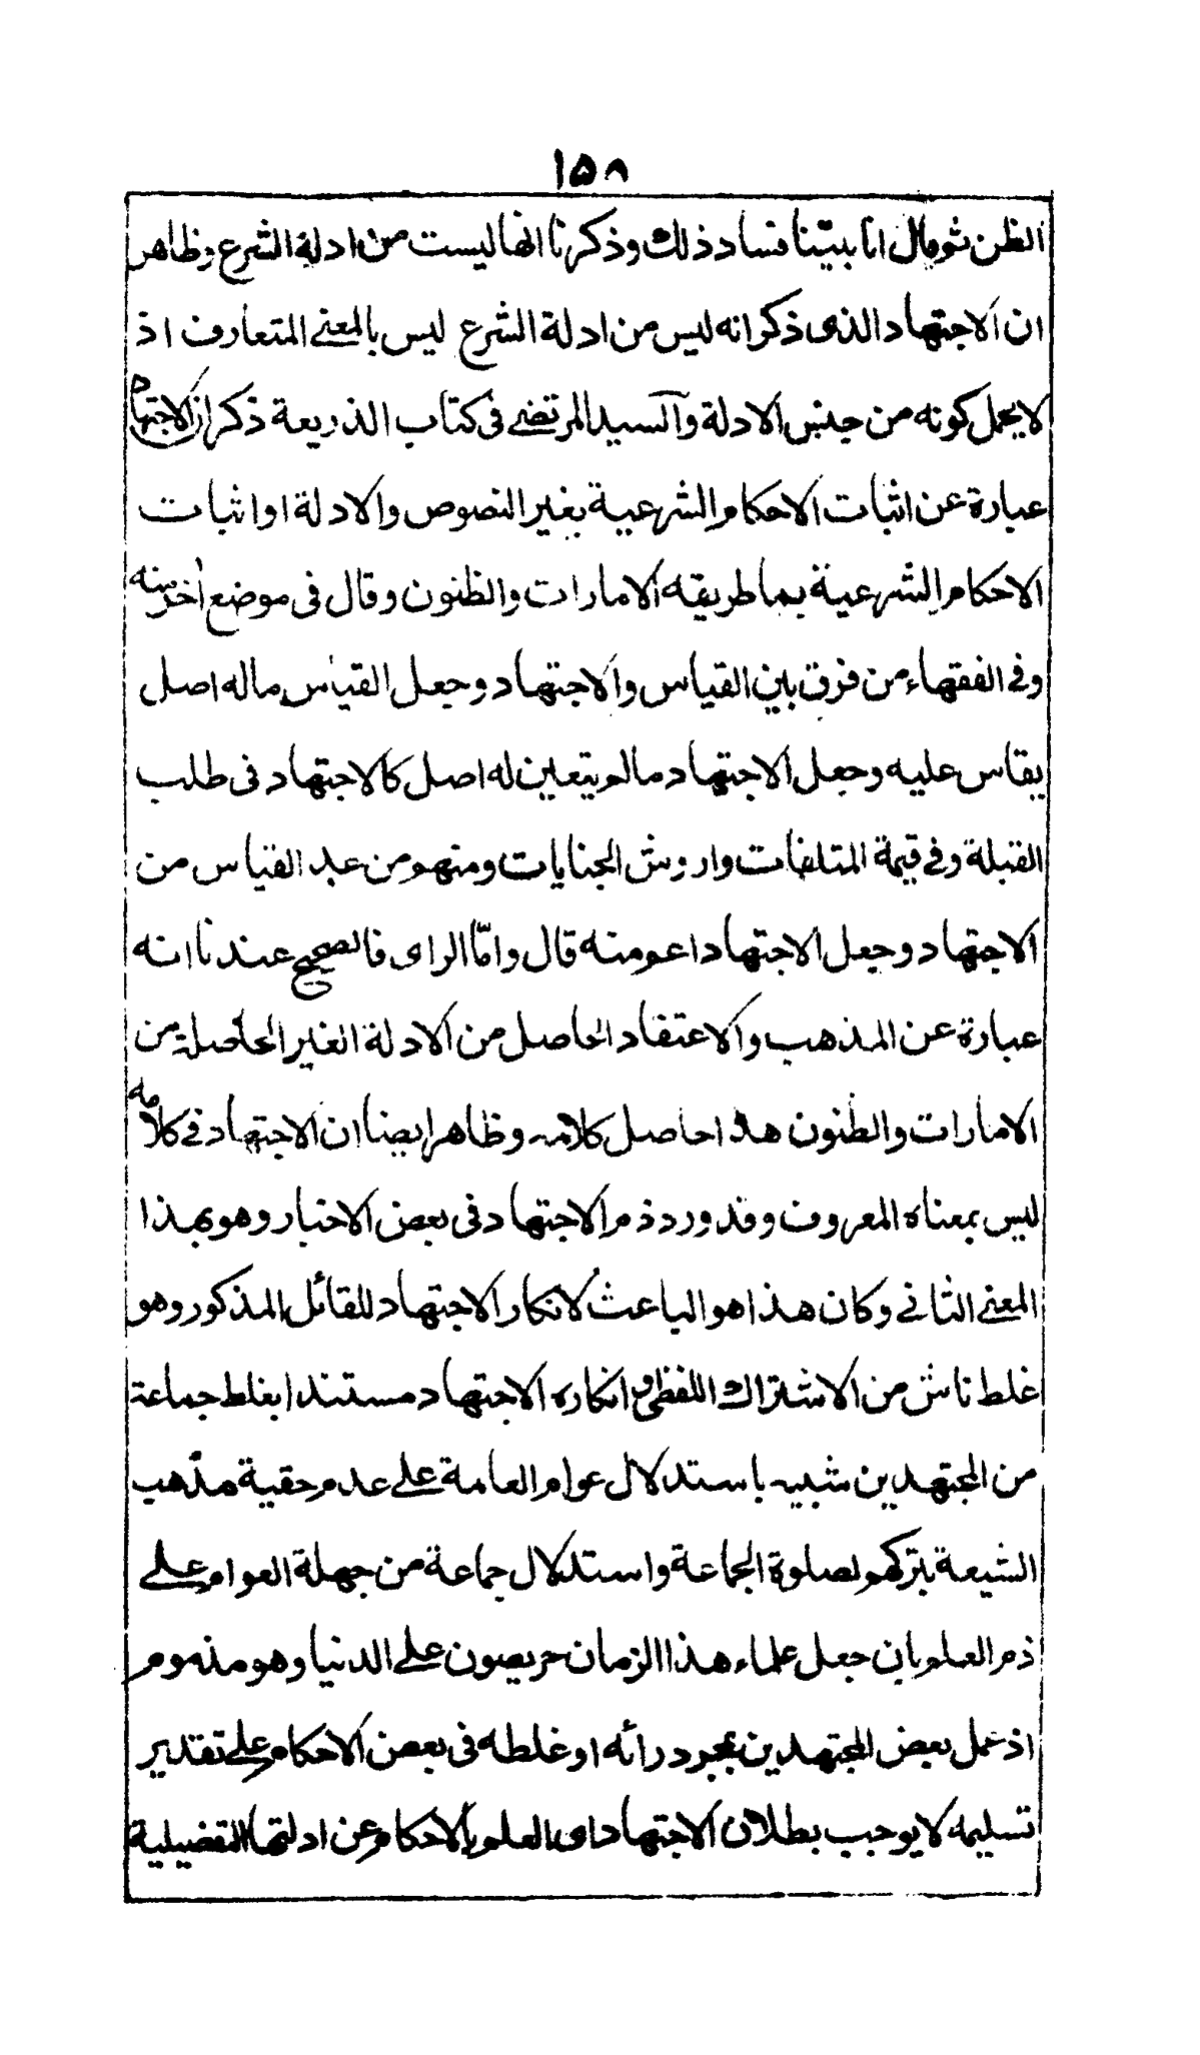 ١٥٨
الظن ثم قال انا بيّنا فساد ذلك وذكرنا انها ليست من ادلة الشرع وظاهر
ان الاجتهاد الذى ذكر انه ليس من ادلة الشرع ليس بالمعنى المتعارف اذ
لا يحمل كونه من جنس الادلة والسيد المرتضى فى كتاب الذريعة ذكر ان الاجتهاد
عبارة عن اثبات الاحكام الشرعية بغير النصوص والادلة او اثبات
الاحكام الشرعية بما طريقه الامارات والظنون وقال فى موضع اخر منه
وفى الفقهاء من فرق بين القياس والاجتهاد وجعل القياس ماله اصل
يقاس عليه وجعل الاجتهاد مالم يتعين له اصل كالاجتهاد فى طلب
القبلة وفى قيمة المتلفات واروش الجنايات ومنهم من عد القياس من
الاجتهاد وجعل الاجتهاد اعم منه قال وامّا الراى فالصحيح عندنا انه
عبارة عن المذهب والاعتقاد الحاصل من الادلة الغير الحاصلة من
الامارات والظنون هذا حاصل كلامه وظاهر ايضا ان الاجتهاد فى كلامه
ليس بمعناه المعروف وقد ورد ذم الاجتهاد فى بعض الاخبار وهو بهذا
المعنى الثانى وكان هذا هو الباعث لانكار الاجتهاد للقائل المذكور وهو
غلط ناش من الاشتراك اللفظى وانكاره الاجتهاد مستندا بغلط جماعة
من المجتهدين شبيه باستدلال عوام العامة على عدم حقية مذهب
الشيعة بتركهم لصلوة الجماعة واستدلال جماعة من جهلة العوام على
ذم العلم بان جعل علماء هذا الزمان حريصون على الدنيا وهو مذموم
اذ عمل بعض المجتهدين بمجرد رائه او غلطه فى بعض الاحكام على تقدير
تسليمه لا يوجب بطلان الاجتهاد اى العلم بالاحكام عن ادلتها التفصيلية